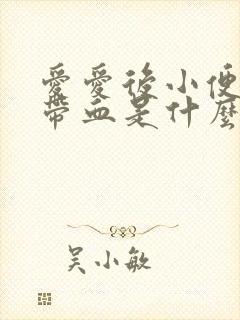 愛愛後小便
帶血是什麼
吴小敏